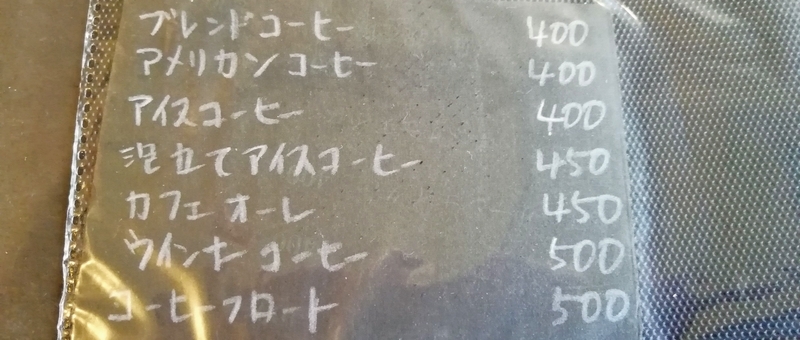 ブレンドコーヒー 400
アメリカンコーヒー 400
アイスコーヒー 400
泡立てアイスコーヒー 450
カフェオーレ 450
ウインナーコーヒー 500
コーヒーフロート 500